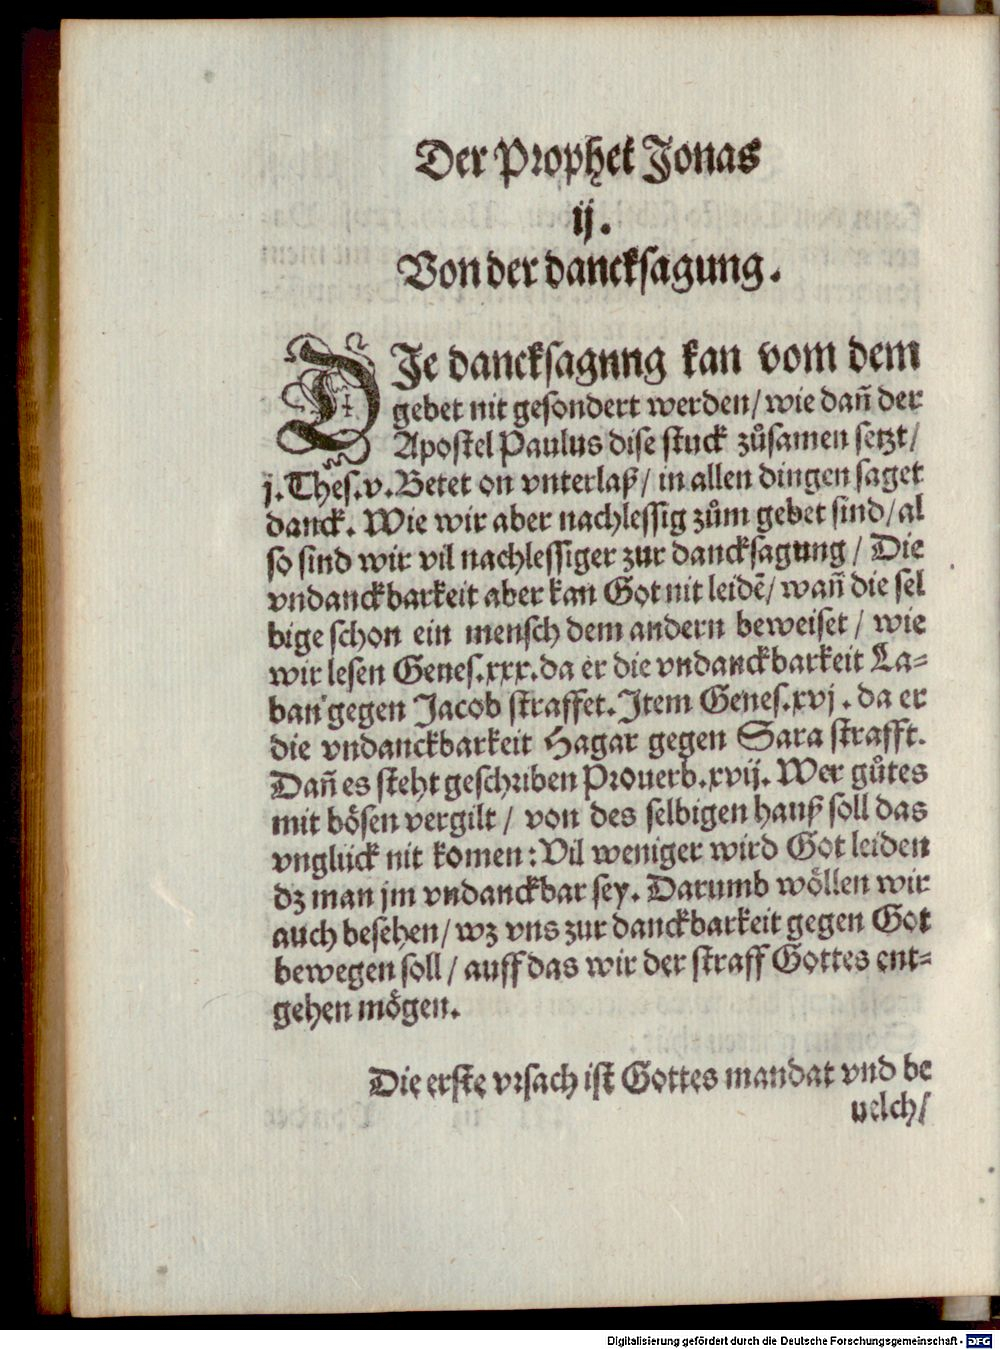 Der Prophet Jonas
ij.
Von der dancksagung.
DJe dancksagnng kan vom dem
gebet nit gesondert werden/ wie dañ der
Apostel Paulus dise stuck zůsamen setzt/
j. Thes. v. Betet on vnterlaß/ in allen dingen saget
danck. Wie wir aber nachlessig zům gebet sind/ al
so sind wir vil nachlessiger zur dancksagung/ Die
vndanckbarkeit aber kan Got nit leidẽ/ wañ die sel
bige schon ein mensch dem andern beweiset/ wie
wir lesen Genes. xxx. da er die vndanckbarkeit La-
ban gegen Jacob straffet. Jtem Genes. xvj. da er
die vndanckbarkeit Hagar gegen Sara strafft.
Dañ es steht geschriben Prouerb. xvij. Wer gůtes
mit bösen vergilt/ von des selbigen hauß soll das
vnglück nit komen: Vil weniger wird Got leiden
dz man jm vndanckbar sey. Darumb wöllen wir
auch besehen/ wz vns zur danckbarkeit gegen Got
bewegen soll/ auff das wir der straff Gottes ent-
gehen mögen.
Die erste vrsach ist Gottes mandat vnd be
uelch/
Digitalisierung gefördert durch die Deutsche Forschungsgemeinschaft - DFG